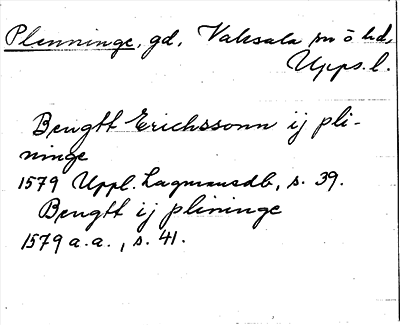 Plenninge, gd, Vaksala sn ö hd,
Upps. l.
Bengtt Erichssonn ij pli-
ninge
1579 Uppl. Lagmansdb, s. 39.
Bengtt ij plininge
1579 a.a., s. 41.